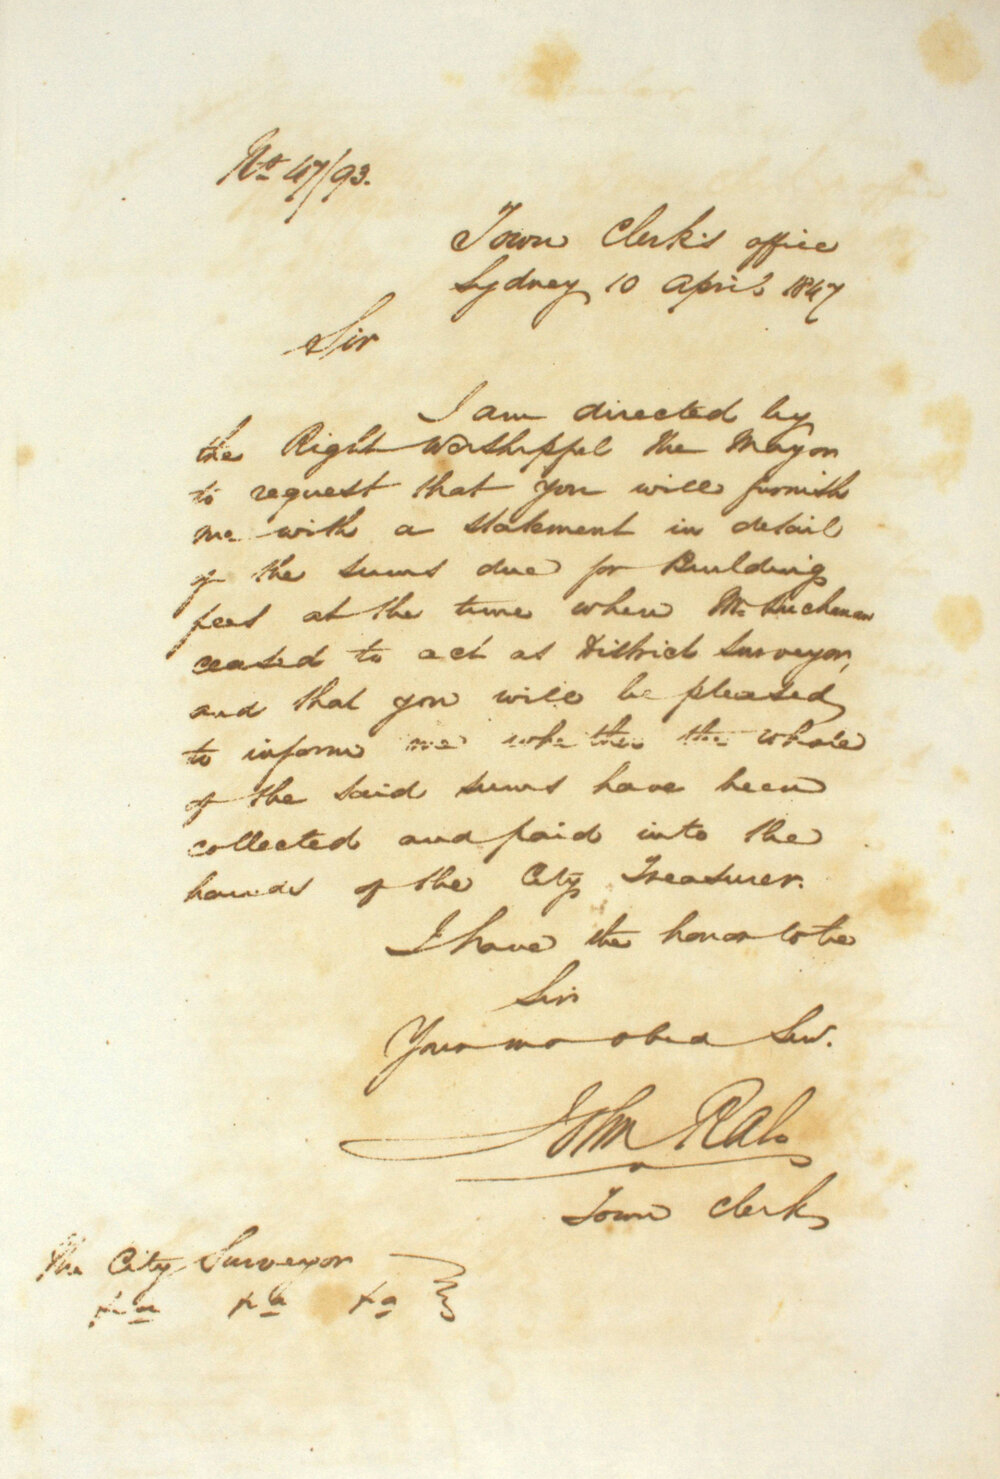 No 47/93.
Town Clerk's office
Sydney 10 April 1847
Sir
I am directed by
the Right Worshippful the Mayor
to request that you will furnish
me with a statement in detail
of the sums due for Building
fees at the time when Mr
ceased to act as District Surveyor,
and that you will be pleased
to inform me whether the whole
of the said sums have been
collected and paid into the
hands of the City Treasurer.
I have the honor to be
Sir
Your mo obed Ser.
John Rae
Town Clerk
The City Surveyor
&a &a &a